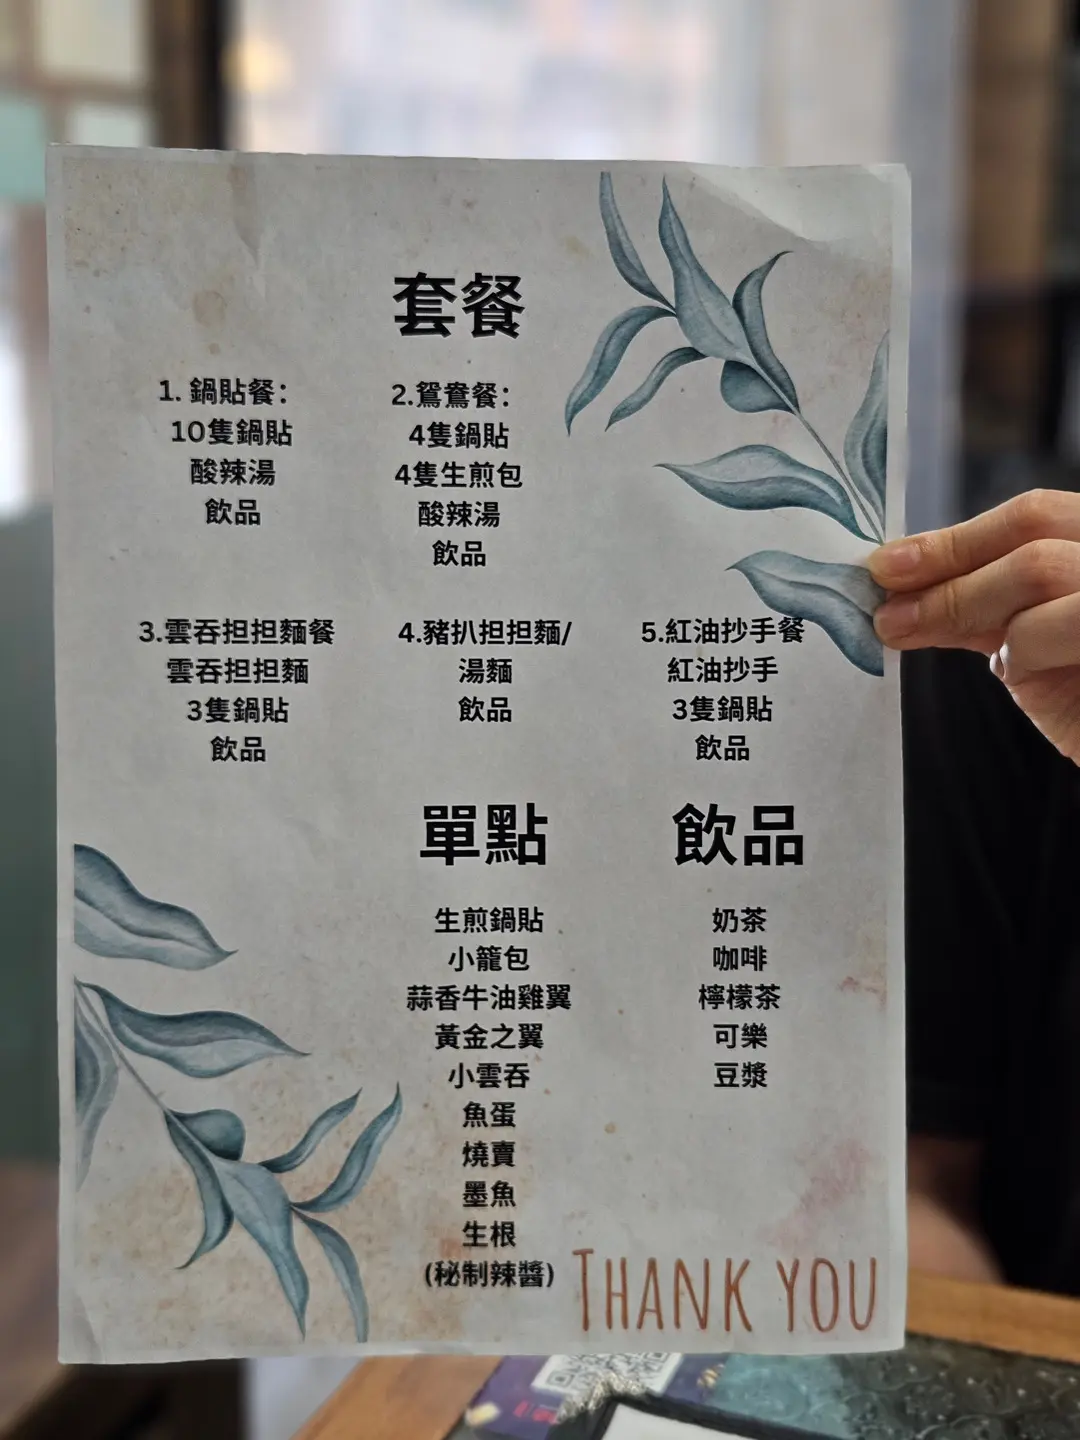 套餐
1. 鍋貼餐：
10隻鍋貼
酸辣湯
飲品
2.鴛鴦餐：
4隻鍋貼
4隻生煎包
酸辣湯
飲品
3.雲吞担担麵餐
雲吞担担麵
3隻鍋貼
飲品
4.豬扒担担麵/
湯麵
飲品
5.紅油抄手餐
紅油抄手
3隻鍋貼
飲品
單點
生煎鍋貼
小籠包
蒜香牛油雞翼
黃金之翼
小雲吞
魚蛋
燒賣
墨魚
生根
(秘制辣醬)
飲品
奶茶
咖啡
檸檬茶
可樂
豆漿
THANK YOU